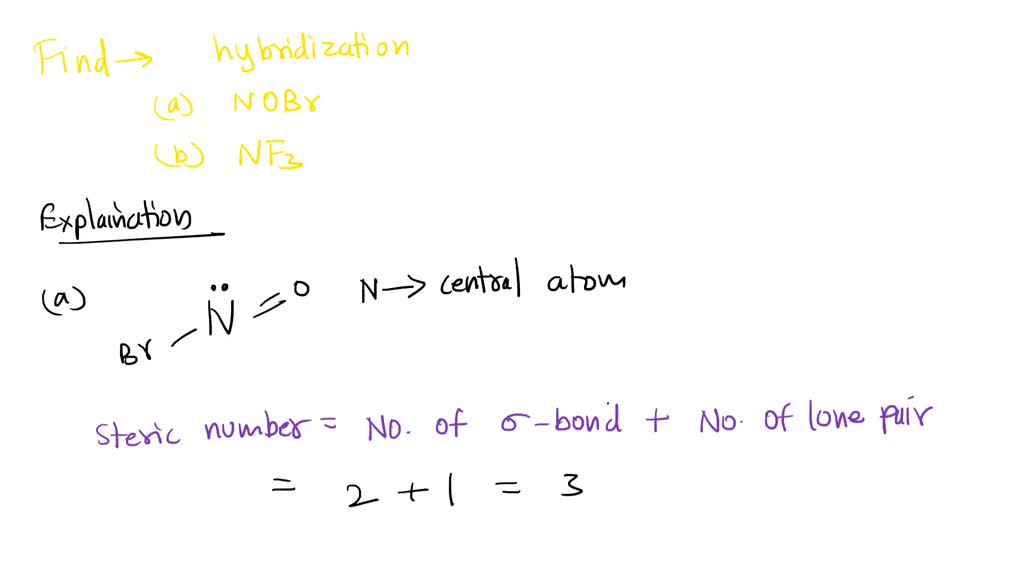 Find → hybridization
(a) NOBr
(b) NF3
Explaination
(a) Br N = O N → central atom
Steric number = No. of σ-bond + No. of lone pair
= 2 + 1 = 3